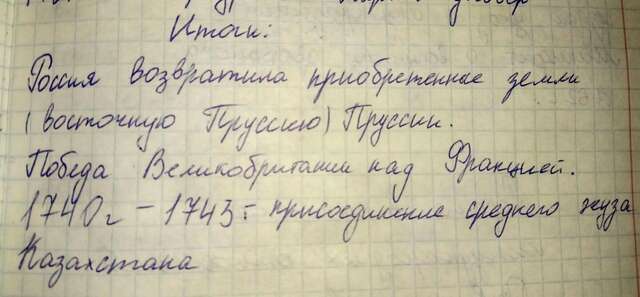 Итоги:
Россия возвратила приобретенные земли
(восточную Пруссию) Пруссии.
Победа Великобритании над Францией.
1740г – 1743г – присоединение среднего жуза
Казахстана